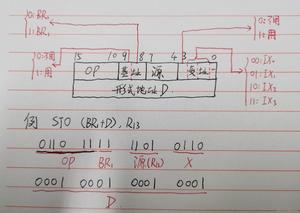 0: BR₀
1: BR₁
0: 不用
1: 用
0: 不用
1: 用
00: IX₀
01: IX₁
10: IX₂
11: IX₃
15 10 9 8 7 4 3 0
OP 基址 源 变址
形式地址 D
例 STO (BR₁+D), R₁₃
0110 11 11 1101 0110
OP BR₁ 源(R₁₃) X
0001 0001 0001 0001
D